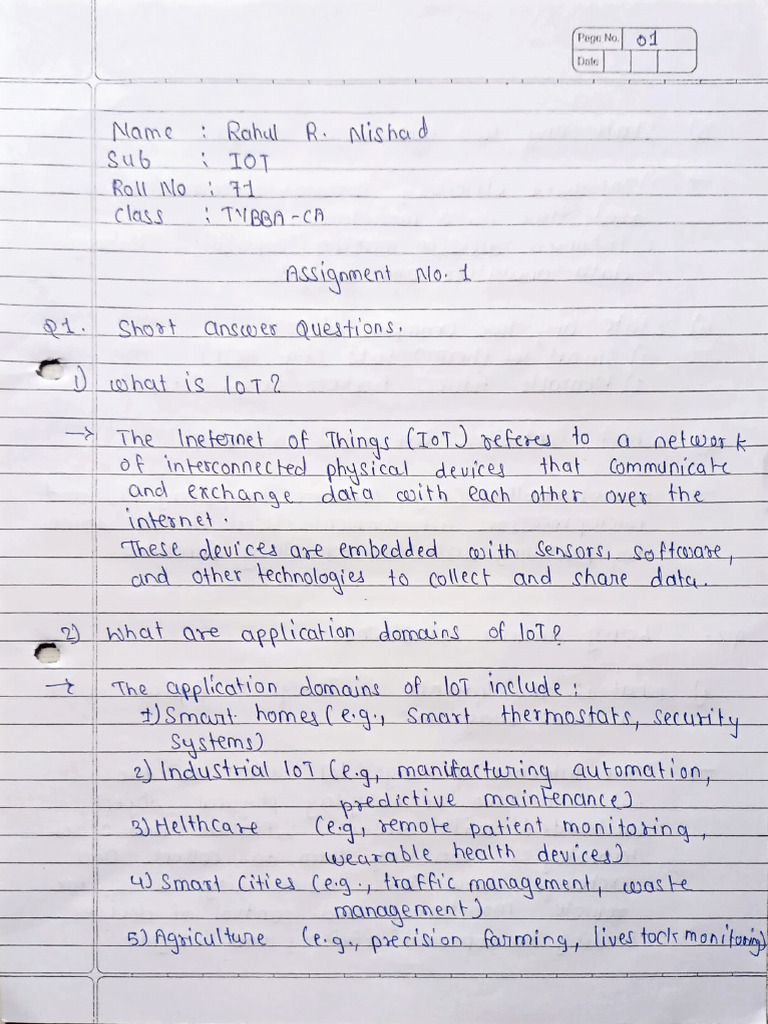 Page No. 01
Date
Name : Rahul R. Nishad
Sub : IOT
Roll No : 71
Class : TYBBA-CA
Assignment No. 1
Q1. Short answer Questions.
1) What is IOT?
→ The Ineternet of Things (IoT) referes to a network
of interconnected physical devices that communicate
and exchange data with each other over the
internet.
These devices are embedded with sensors, software,
and other technologies to collect and share data.
2) What are application domains of IOT?
→ The application domains of IOT include:
1) Smart homes (e.g., smart thermostats, security
systems)
2) Industrial IoT (e.g, manifacturing automation,
predictive maintenance)
3) Helthcare (e.g, remote patient monitoring,
wearable health devices)
4) Smart Cities (e.g., traffic management, waste
management)
5) Agriculture (e.g., precision farming, livestock monitoring)